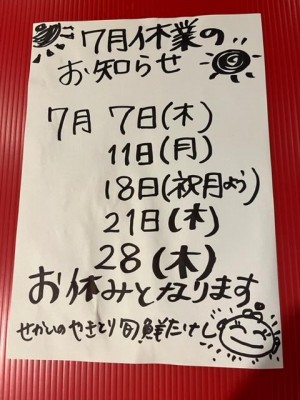 7月休業の
お知らせ
7月 7日(木)
11日(月)
18日(祝月よう)
21日(木)
28(木)
お休みとなります
せかいのやきとり旬鮮たけし